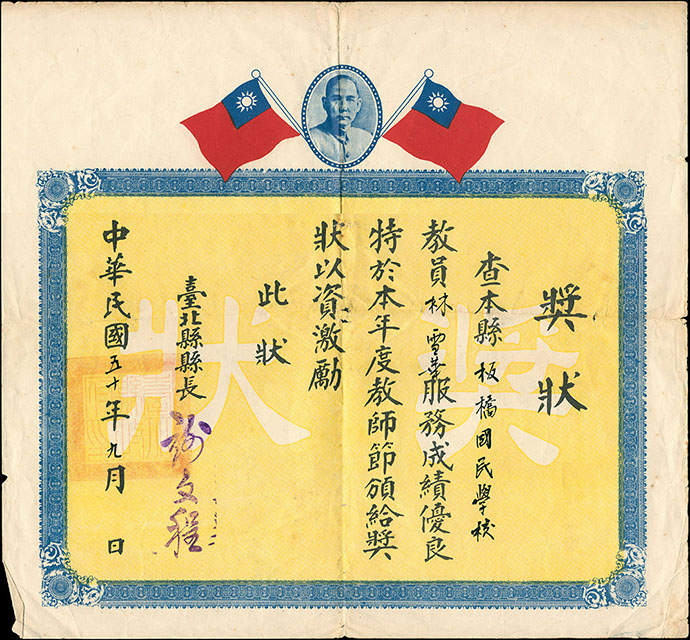 獎狀
查本縣板橋國民學校
教員林雪華服務成績優良
特於本年度教師節頒給獎
狀以資激勵
此狀
臺北縣縣長
謝文程
中華民國五十年九月 日
獎狀